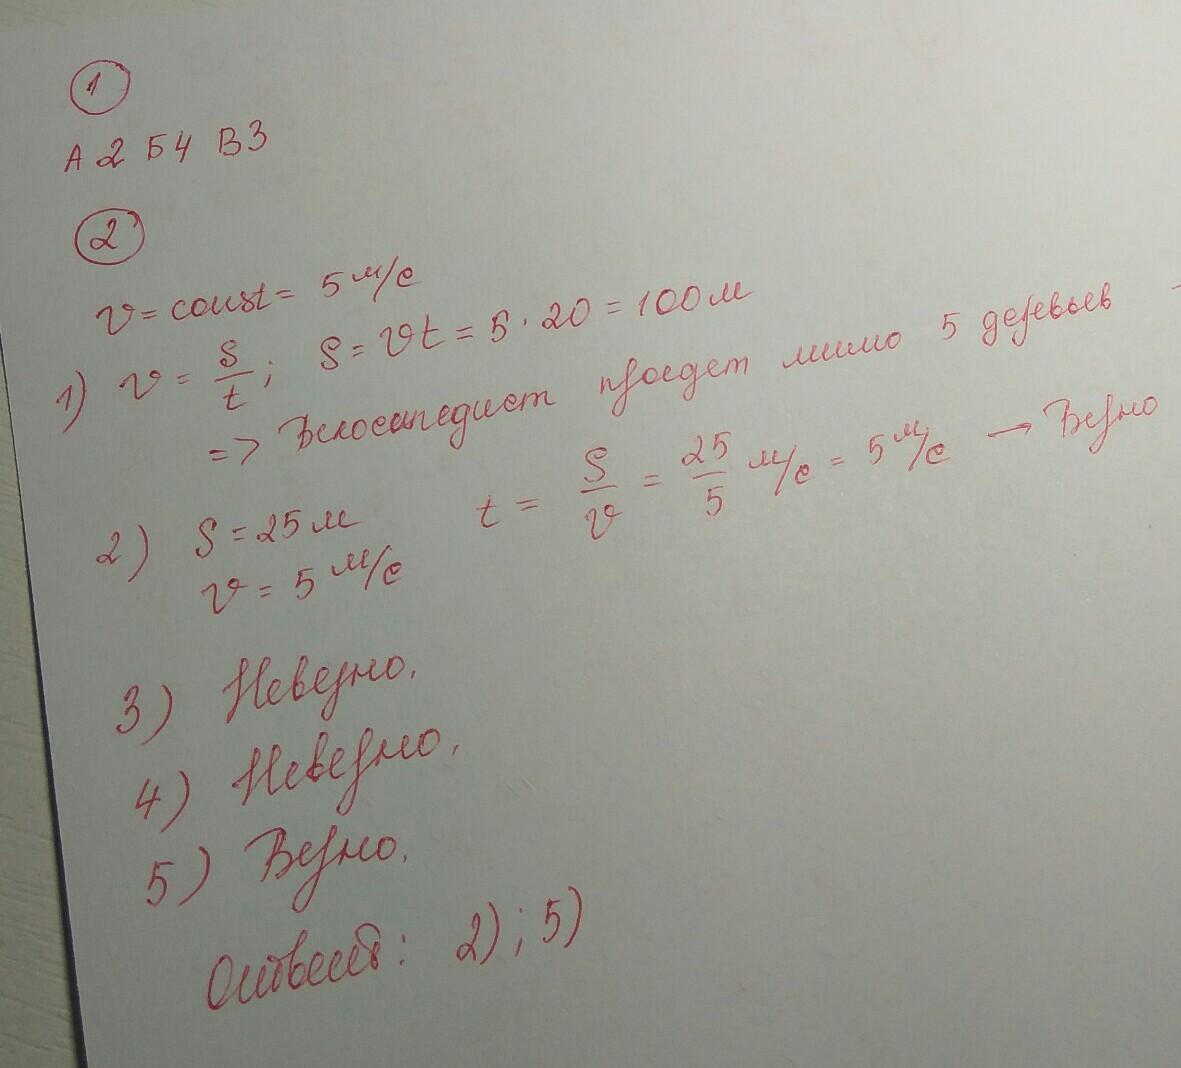 1
А2 Б4 В3
2
v = const = 5 м/с
1) v = S/t; S = vt = 5 · 20 = 100 м
=> Велосипедист проедет мимо 5 деревьев -
2) S = 25 м t = S/v = 25/5 м/с = 5 м/с → Верно
v = 5 м/с
3) Неверно.
4) Неверно.
5) Верно.
Ответ: 2); 5)